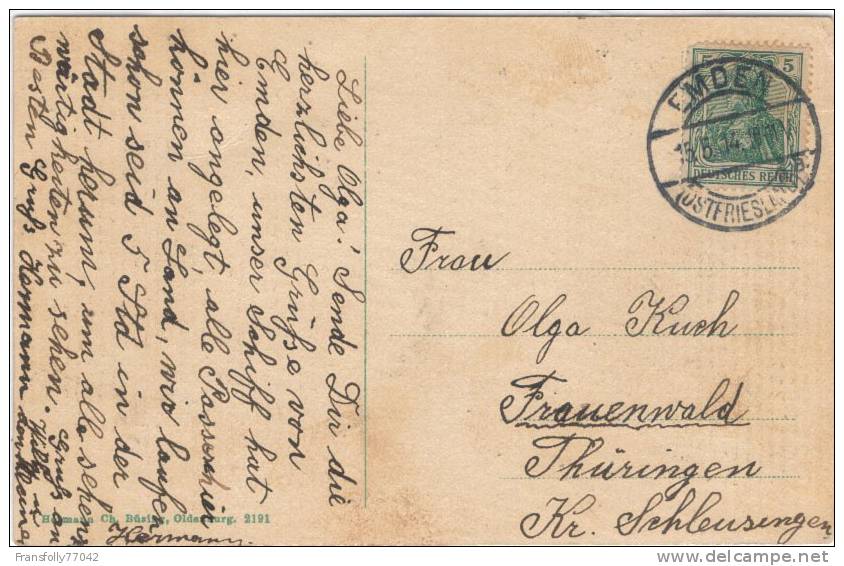 Liebe Olga! Sende Dir die
herzlichsten Grüße von
Emden, unser Schiff hat
hier angelegt, alle Passaschier
können an Land, wir laufen
schon seid 5 Std in der
Stadt herum, um alle sehens
würtigkeiten zu sehen. Gruß an
Willy u
Besten Gruß Hermann den kleinen
Hermann
5 5
DEUTSCHES REICH
EMDEN
(OSTFRIESLAND)
Frau
Olga Kuch
Frauenwald
Thüringen
Kr. Schleusingen
Hermann Ch. Büsing, Oldenburg. 2191
Fransfolly77042
delcampe.net